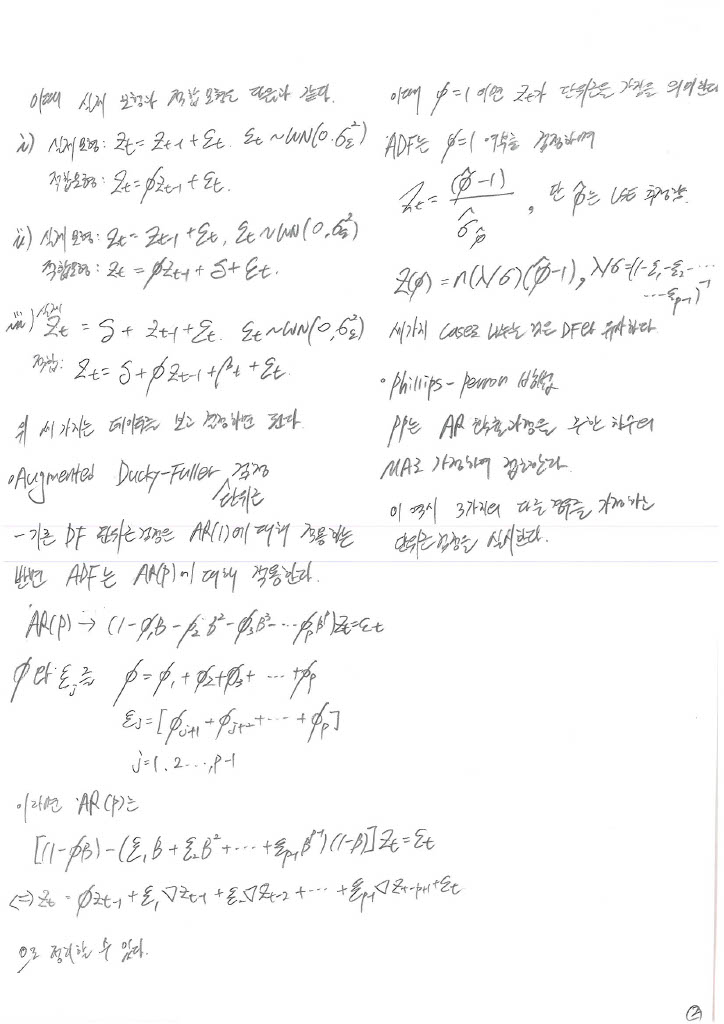 이때 실제 모형과 적합 모형은 다음과 같다.
i) 실제모형: Zt = Zt-1 + εt. εt ~ WN(0. σε²)
적합모형: Zt = ϕZt-1 + εt.
ii) 실제모형: Zt = Zt-1 + εt, εt ~ WN(0, σε²)
적합모형: Zt = ϕZt-1 + δ + εt.
iii) 실제 Zt = δ + Zt-1 + εt. εt ~ WN(0, σε²)
적합: Zt = δ + ϕZt-1 + βt + εt.
위 세가지는 데이터를 보고 결정하면 된다.
◦Augmented Ducky-Fuller 단위근 검정
- 기존 DF 단위근검정은 AR(1)에 대해 적용하는
반면 ADF는 AR(p)에 대해 적용한다.
AR(p) → (1-ϕ1B - ϕ2B² - ϕ3B³ - ··· ϕpB^p)Zt = εt
ϕ와 ξj를 ϕ = ϕ1 + ϕ2 + ϕ3 + ··· + ϕp
ξj = [ϕj+1 + ϕj+2 + ··· + ϕp]
j = 1. 2 ···, p-1
이라면 AR(p)는
[(1-ϕB) - (ξ1B + ξ2B² + ··· + ξp-1B^p-1)(1-B)]Zt = εt
⇔ Zt = ϕZt-1 + ξ1▽Zt-1 + ξ2▽Zt-2 + ··· + ξp-1▽Zt-p+1 + εt
으로 정리할 수 있다.
이때 ϕ=1 이면 Zt가 단위근을 가짐을 의미한다
ADF는 ϕ=1 여부를 검정하며
Zt = (ϕ̂-1) / σ̂ϕ̂ , 단 ϕ̂는 LSE 추정량.
Z(ϕ) = n(λ/σ)(ϕ̂-1), λ/σ = (1-ξ1-ξ2- ···
··· ξp-1)^-1
세가지 case로 나누는 것은 DF와 유사하다.
◦ Phillips-perron 방법
PP는 AR 확률과정을 무한 차수의
MA로 가정하여 접근한다.
이 역시 3가지의 다른 경우를 가정하는
단위근검정을 실시한다.
②